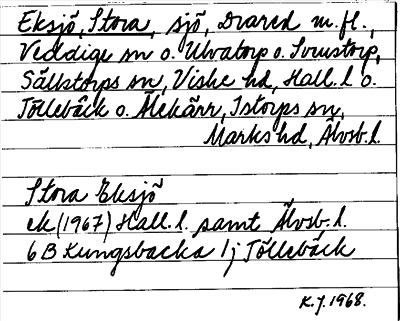 Eksjö, Stora, sjö, Drared m.fl.,
Veddige sn o. Ulvatorp o. Svenstorp,
Sällstorps sn, Viske hd, Hall. l o.
Töllebäck o. Älekärr, Istorps sn,
Marks hd, Älvsb. l.
Stora Eksjö
ek (1967) Hall. l. samt Älvsb. l.
6 B Kungsbacka 1j Töllebäck
K.J. 1968.